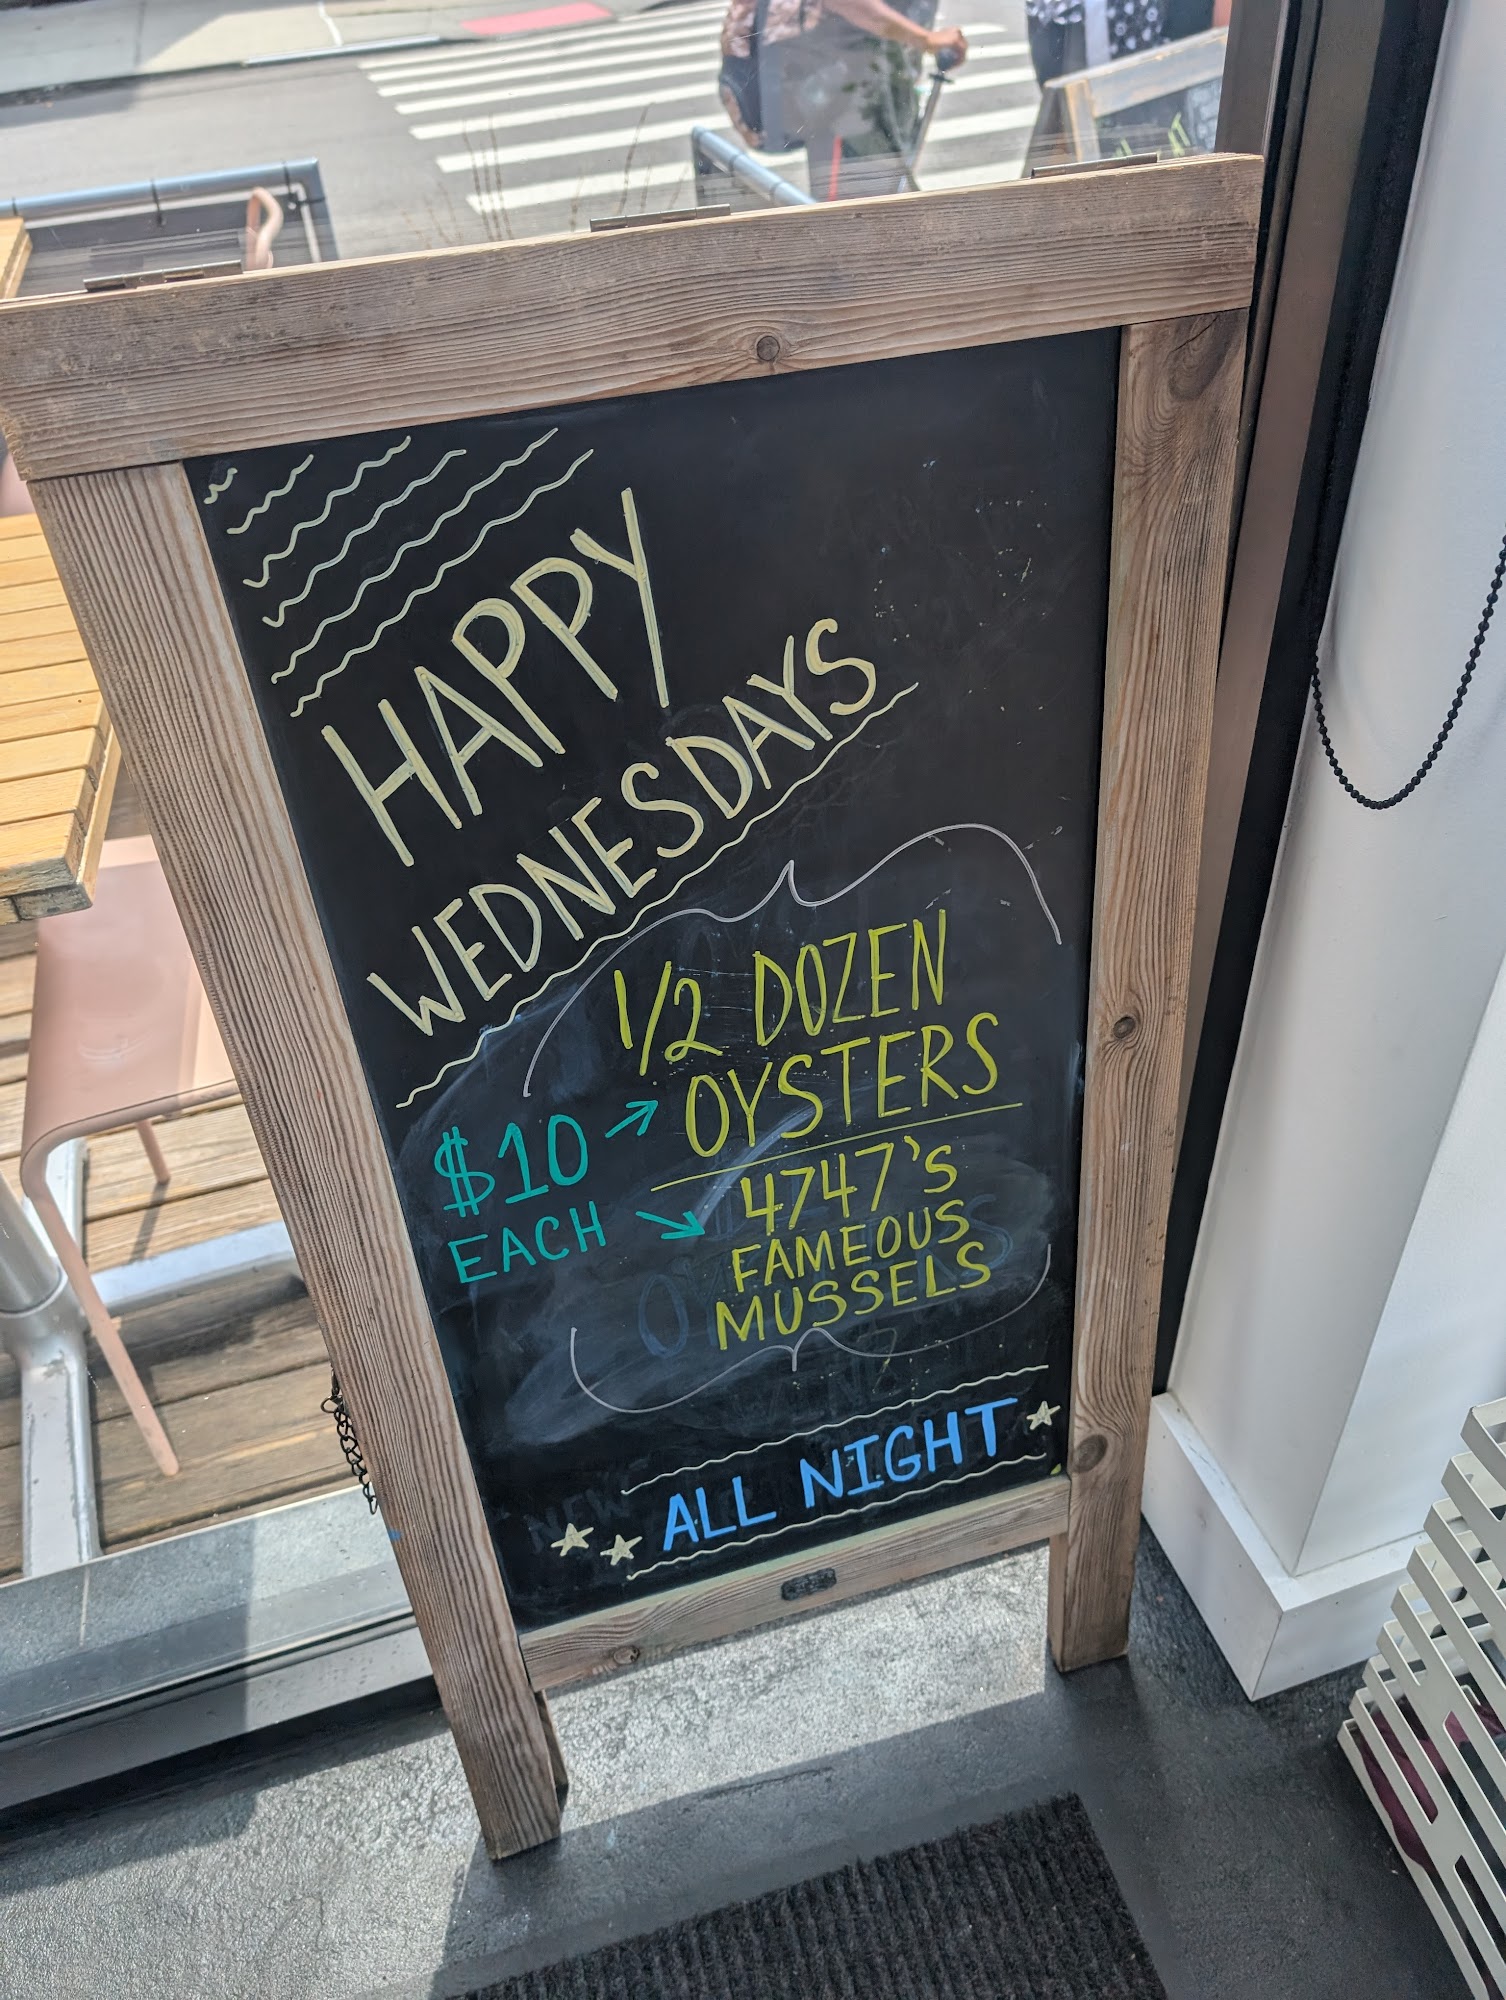 HAPPY
WEDNESDAYS
1/2 DOZEN
OYSTERS
$10
EACH
4747's
FAMEOUS
MUSSELS
ALL NIGHT